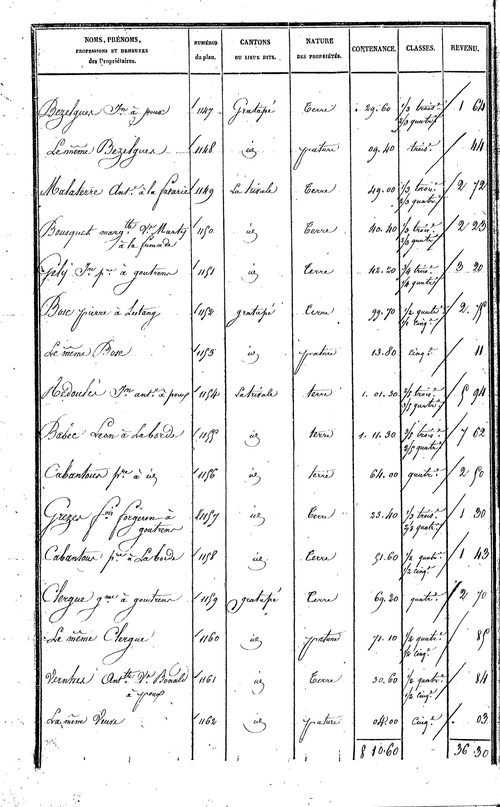 NOMS, PRÉNOMS, PROFESSIONS ET DEMEURES des Propriétaires. NUMÉROS du plan. CANTONS OU LIEUX DITS. NATURE DES PROPRIÉTÉS. CONTENANCE. CLASSES. REVENU.
Bezelgues Jn à poux 1147 Gratapé Terre 29.60 1/3 trois.e 2/3 quatr.e 1 64
Le même Bezelgues 1148 id pature 09.40 trois.e 44
Malaterre Ant.e à la 1149 La trivale Terre 49.00 1/3 trois.e 2/3 quatr.e 2 72
Bousquet marg.te V.e Marty à la fumade 1150 id Terre 40.40 1/3 trois.e 2/3 quatr.e 2 23
Gély Jn p.re à goutrens 1151 id Terre 42.20 3/4 trois.e 1/4 quatr.e 3 20
Bosc pierre à Lestang 1152 gratapé Terre 99.70 1/2 quatr.e 1/2 cinq.e 2 75
Le même Bosc 1153 id pature 13.80 cinq.e 11
Redoulés Jn ant.e à poux 1154 La trivale terre 1.01.30 trois.e quatr.e 5 94
Babec Leon à Laborde 1155 id terre 1.11.30 trois.e quatr.e 7 62
Cabantous p.re à id 1156 id terre 64.00 quatr.e 2 50
Grezes f.ois forgeron à goutrens 1157 id Terre 23.40 1/3 trois.e 2/3 quatr.e 1 30
Cabantous p.re à Laborde 1158 id Terre 51.60 1/2 quatr.e 1/2 cinq.e 1 43
Clergue g.me à goutrens 1159 gratapé Terre 69.20 quatr.e 2 70
Le même Clergue 1160 id pature 71.10 1/2 quatr.e 1/2 cinq.e 85
Vernhes Ant.tte V.e Bonald à poux 1161 id Terre 30.60 1/2 quatr.e 1/2 cinq.e 84
La même Veuve 1162 id pature 04.00 cinq.e 03
8 10.60 36 30